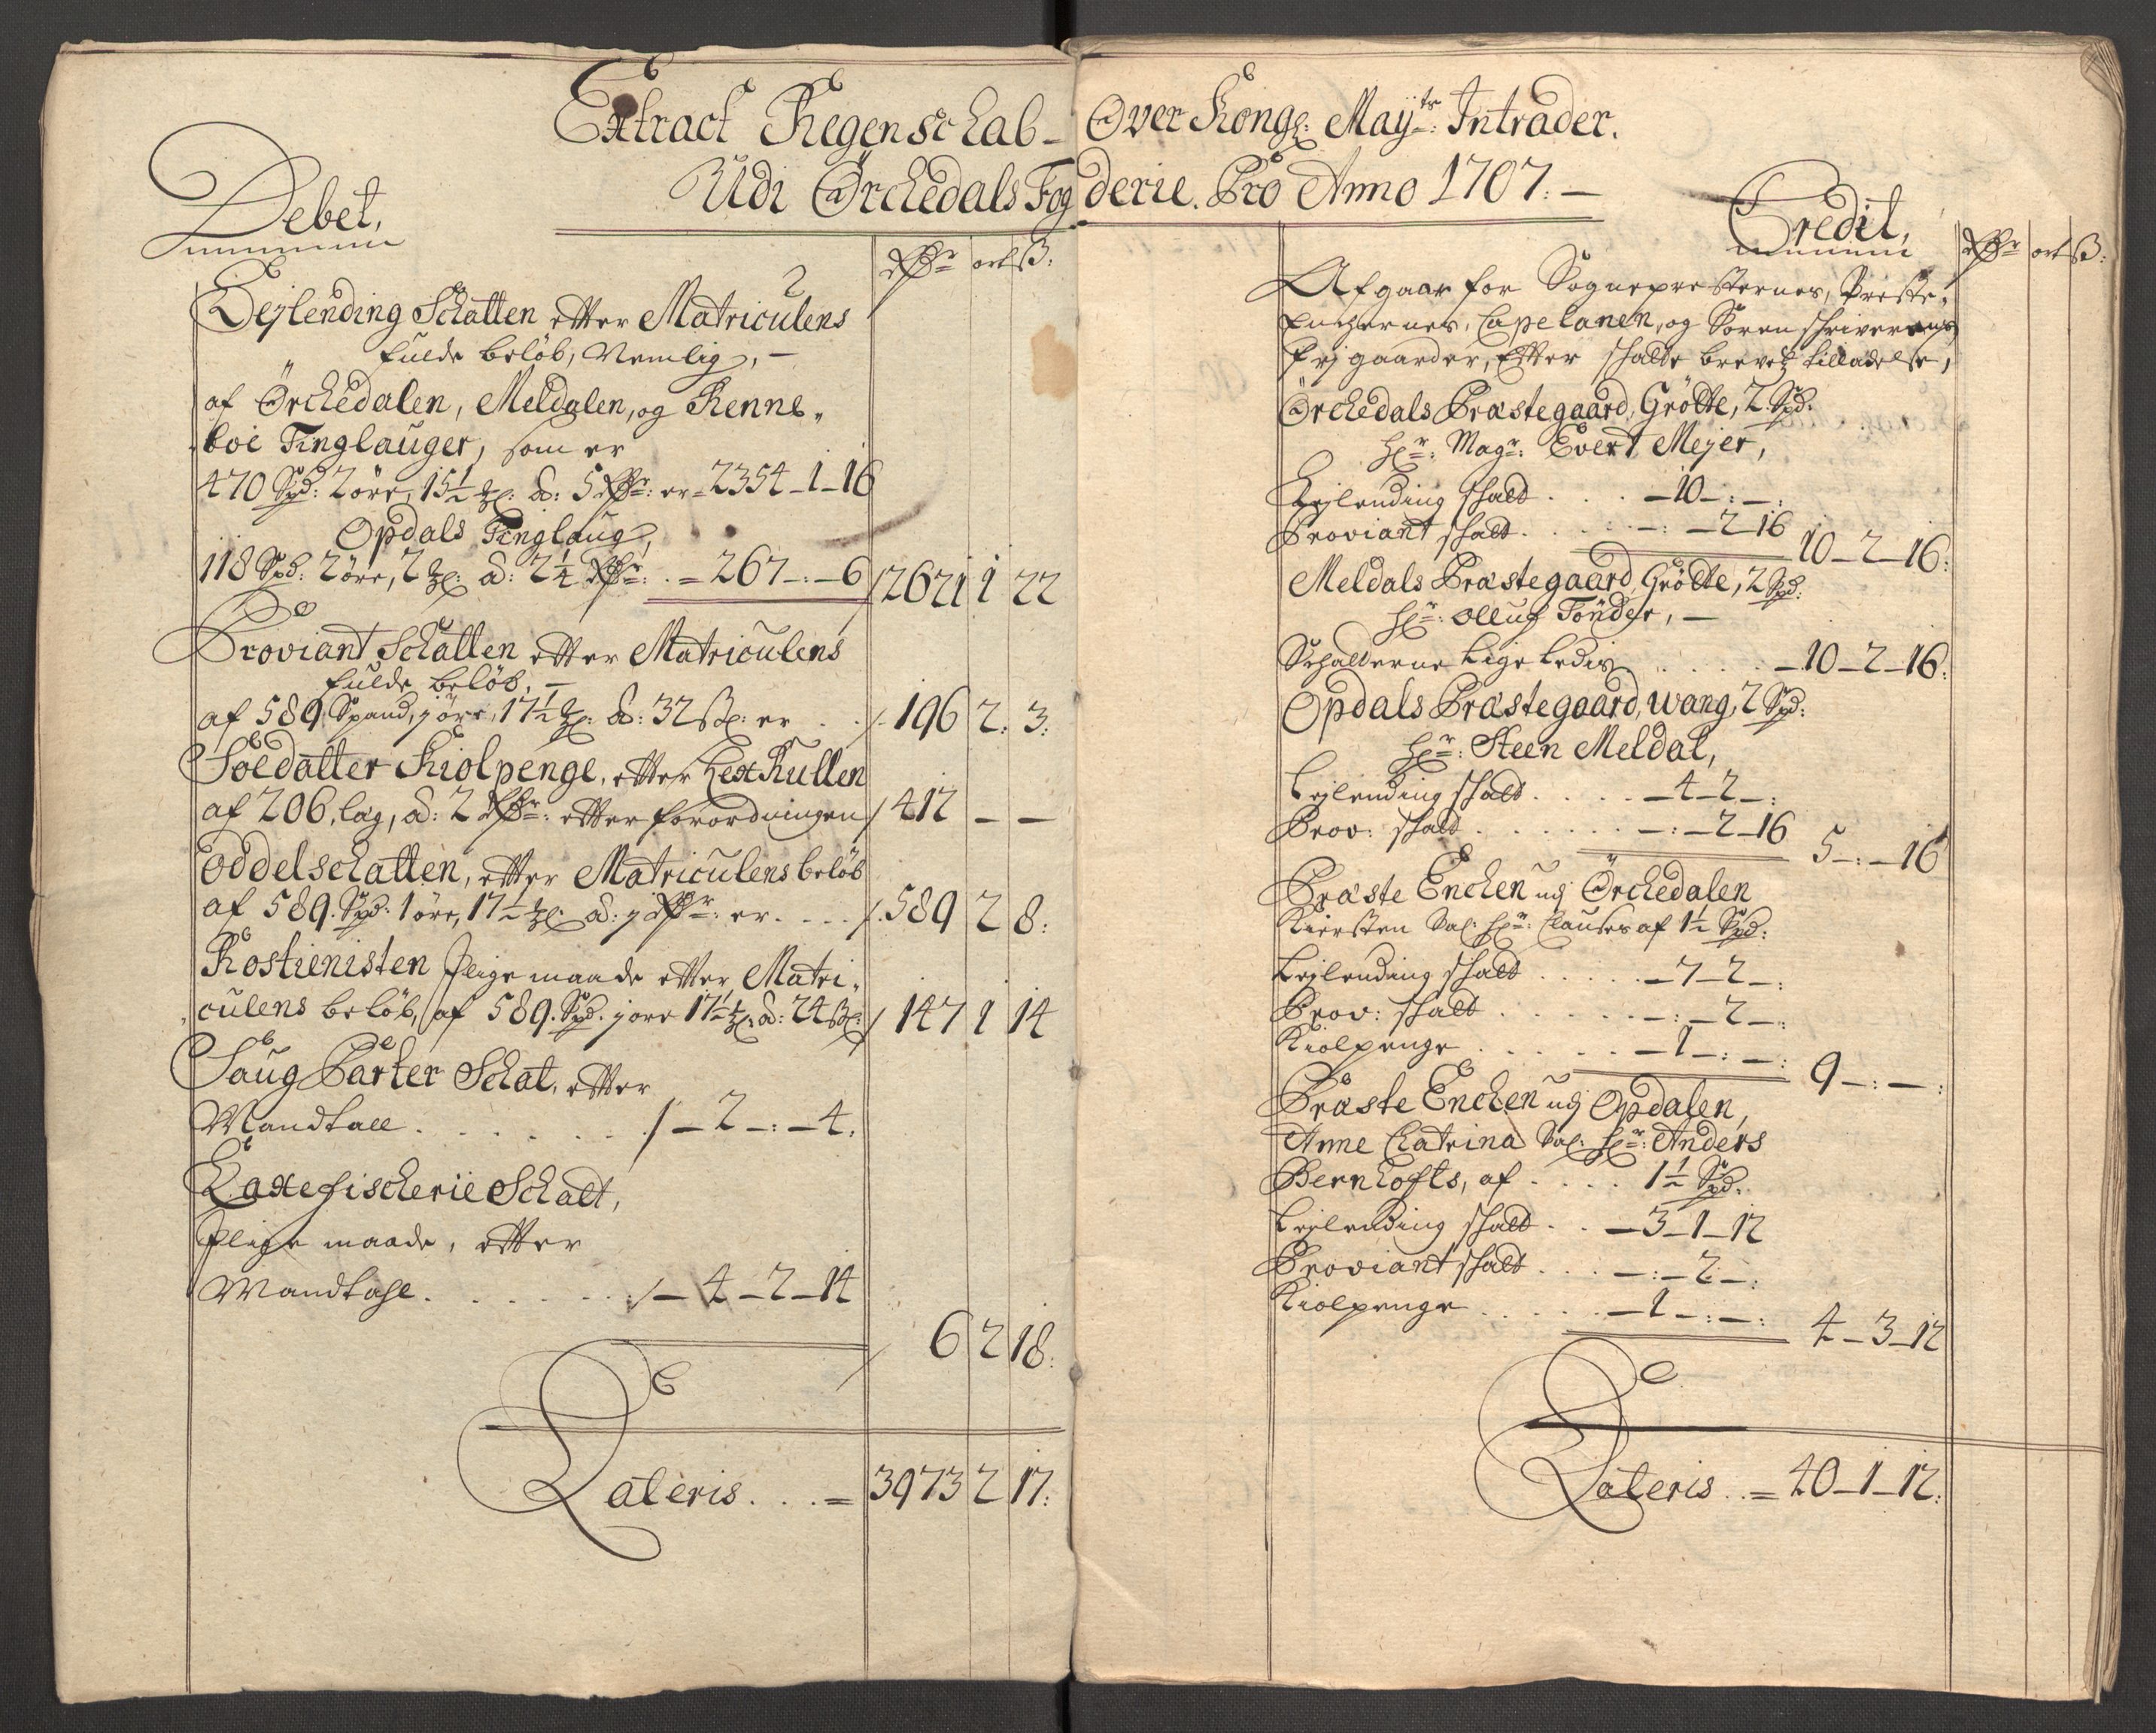 Extract Regenschab Over Kongl: Maÿts: Intrader.
Udi Örchedals Fogderie. Pro Anno 1707. —
Debet,
Rdr ort ß:
Leylending Schatten etter Matriculens
fulde beløb, Nemlig, —
af Örchedalen, Meldalen, og Renne„
„boe Tinglauger, som er
470 Spd: 2 öre, 15½ ȝl: à: 5 Rdr: er = 2354 – 1 – 16
Opdals Tinglaug,
118 Spd: 2 öre, 2 ȝl: à: 2¼ Rdr: . = 267 – : – 6 / 2621 1 22
Proviant Schatten etter Matriculens
fulde beløb, —
af 589 Spand, j öre, 17½ ȝl: à: 32 ßl: er . . /. 196 2. 3.
Soldatter Kiolpenge, etter LexRullen
af 206, lag, à: 2 Rdr: etter forordningen / 412 – –
Oddelschatten, etter Matriculens beløb
af 589. Spd: 1 öre, 17½ ȝl: à: j Rdr: er. . . . /. 589 2 8:
Rostienisten Jlige maade etter Matri„
„culens beløb, af 589. Spd. j öre 17½ ȝl: à: 24 ßl: / 147 1 14
Saug Parter Schat, etter
Mandtall . . . . . . ./ – 2 – : – 4.
Laxefischerie Schatt,
Jlige maade, etter
Mandtahl . . . . . . ./ – 4 – 2 – 14
6 2 18:
Lateris . . . = 3973 2 17:
Credit,
Rdr ort ß:
Afgaar for Sognepresternes, Preste„
Enchernes, Capelanen, og Sorenschriverens
frj gaarder, Etter schatte brevetz tilladelse,
Örchedals Præstegaard, Grötte, 2. Spd.
Hr: Magr: Evert Mejer,
Leylending schatt . . . – 10 – : – :
Proviant schatt . . . . – : – 2 – 16 10 – 2 – 16:
Meldals Præstegaard, Grötte, 2 Spd:
Hr: Olluf Tönder, —
Schatterne Lige Ledis . . . . – 10 – 2 – 16:
Opdals Præstegaard, Wang, 2 Spd:
Hr: Steen Meldal,
Leylending schatt . . . . – 4 – 2 – :
Prov: schatt . . . . . . – : – 2 – 16 5 – : – 16
Præste Enchen udj Örchedalen
Kiersten Sal: Hr: Clauses af 1½ Spd:
Leylending schatt . . . . – 7 – 2 – :
Prov: schatt . . . . . – : – 2 – :
Kiolpenge . . . . . – 1 – : – : 9 – : – :
Præste Enchen udj Opdalen,
Anne Catrina Sal: Hr: Anders
Bernhofts, af . . . . 1½ Spd.
Leylending schatt . . – 3 – 1 – 12
Proviant schatt . . . – : – 2 – :
Kiolpenge . . . . . – 1 – : – : 4 – 3 – 12
Lateris . . = 40 – 1 – 12: